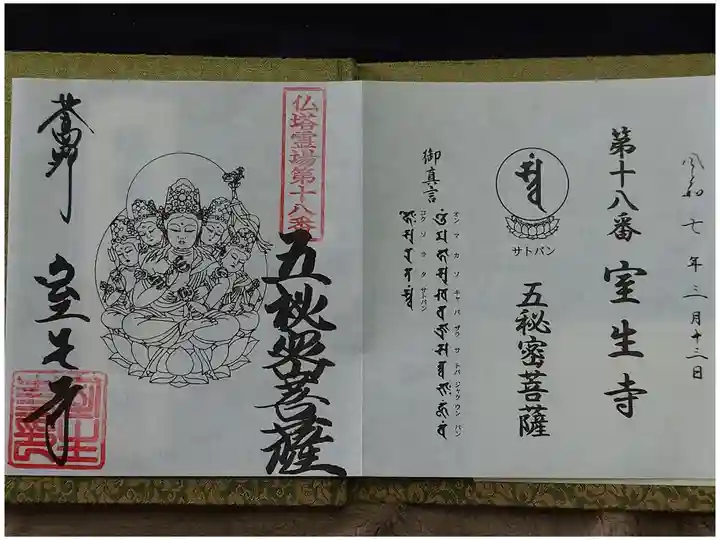 令和七年三月十三日
第十八番 室生寺
サトバン
五秘密菩薩
御真言
オン マ カ ソ キャ バ ザラ サ トバ ジャク ウン バン
コク ソ ラ タ サトバン
仏塔霊場第十八番
五秘密菩薩
室生寺